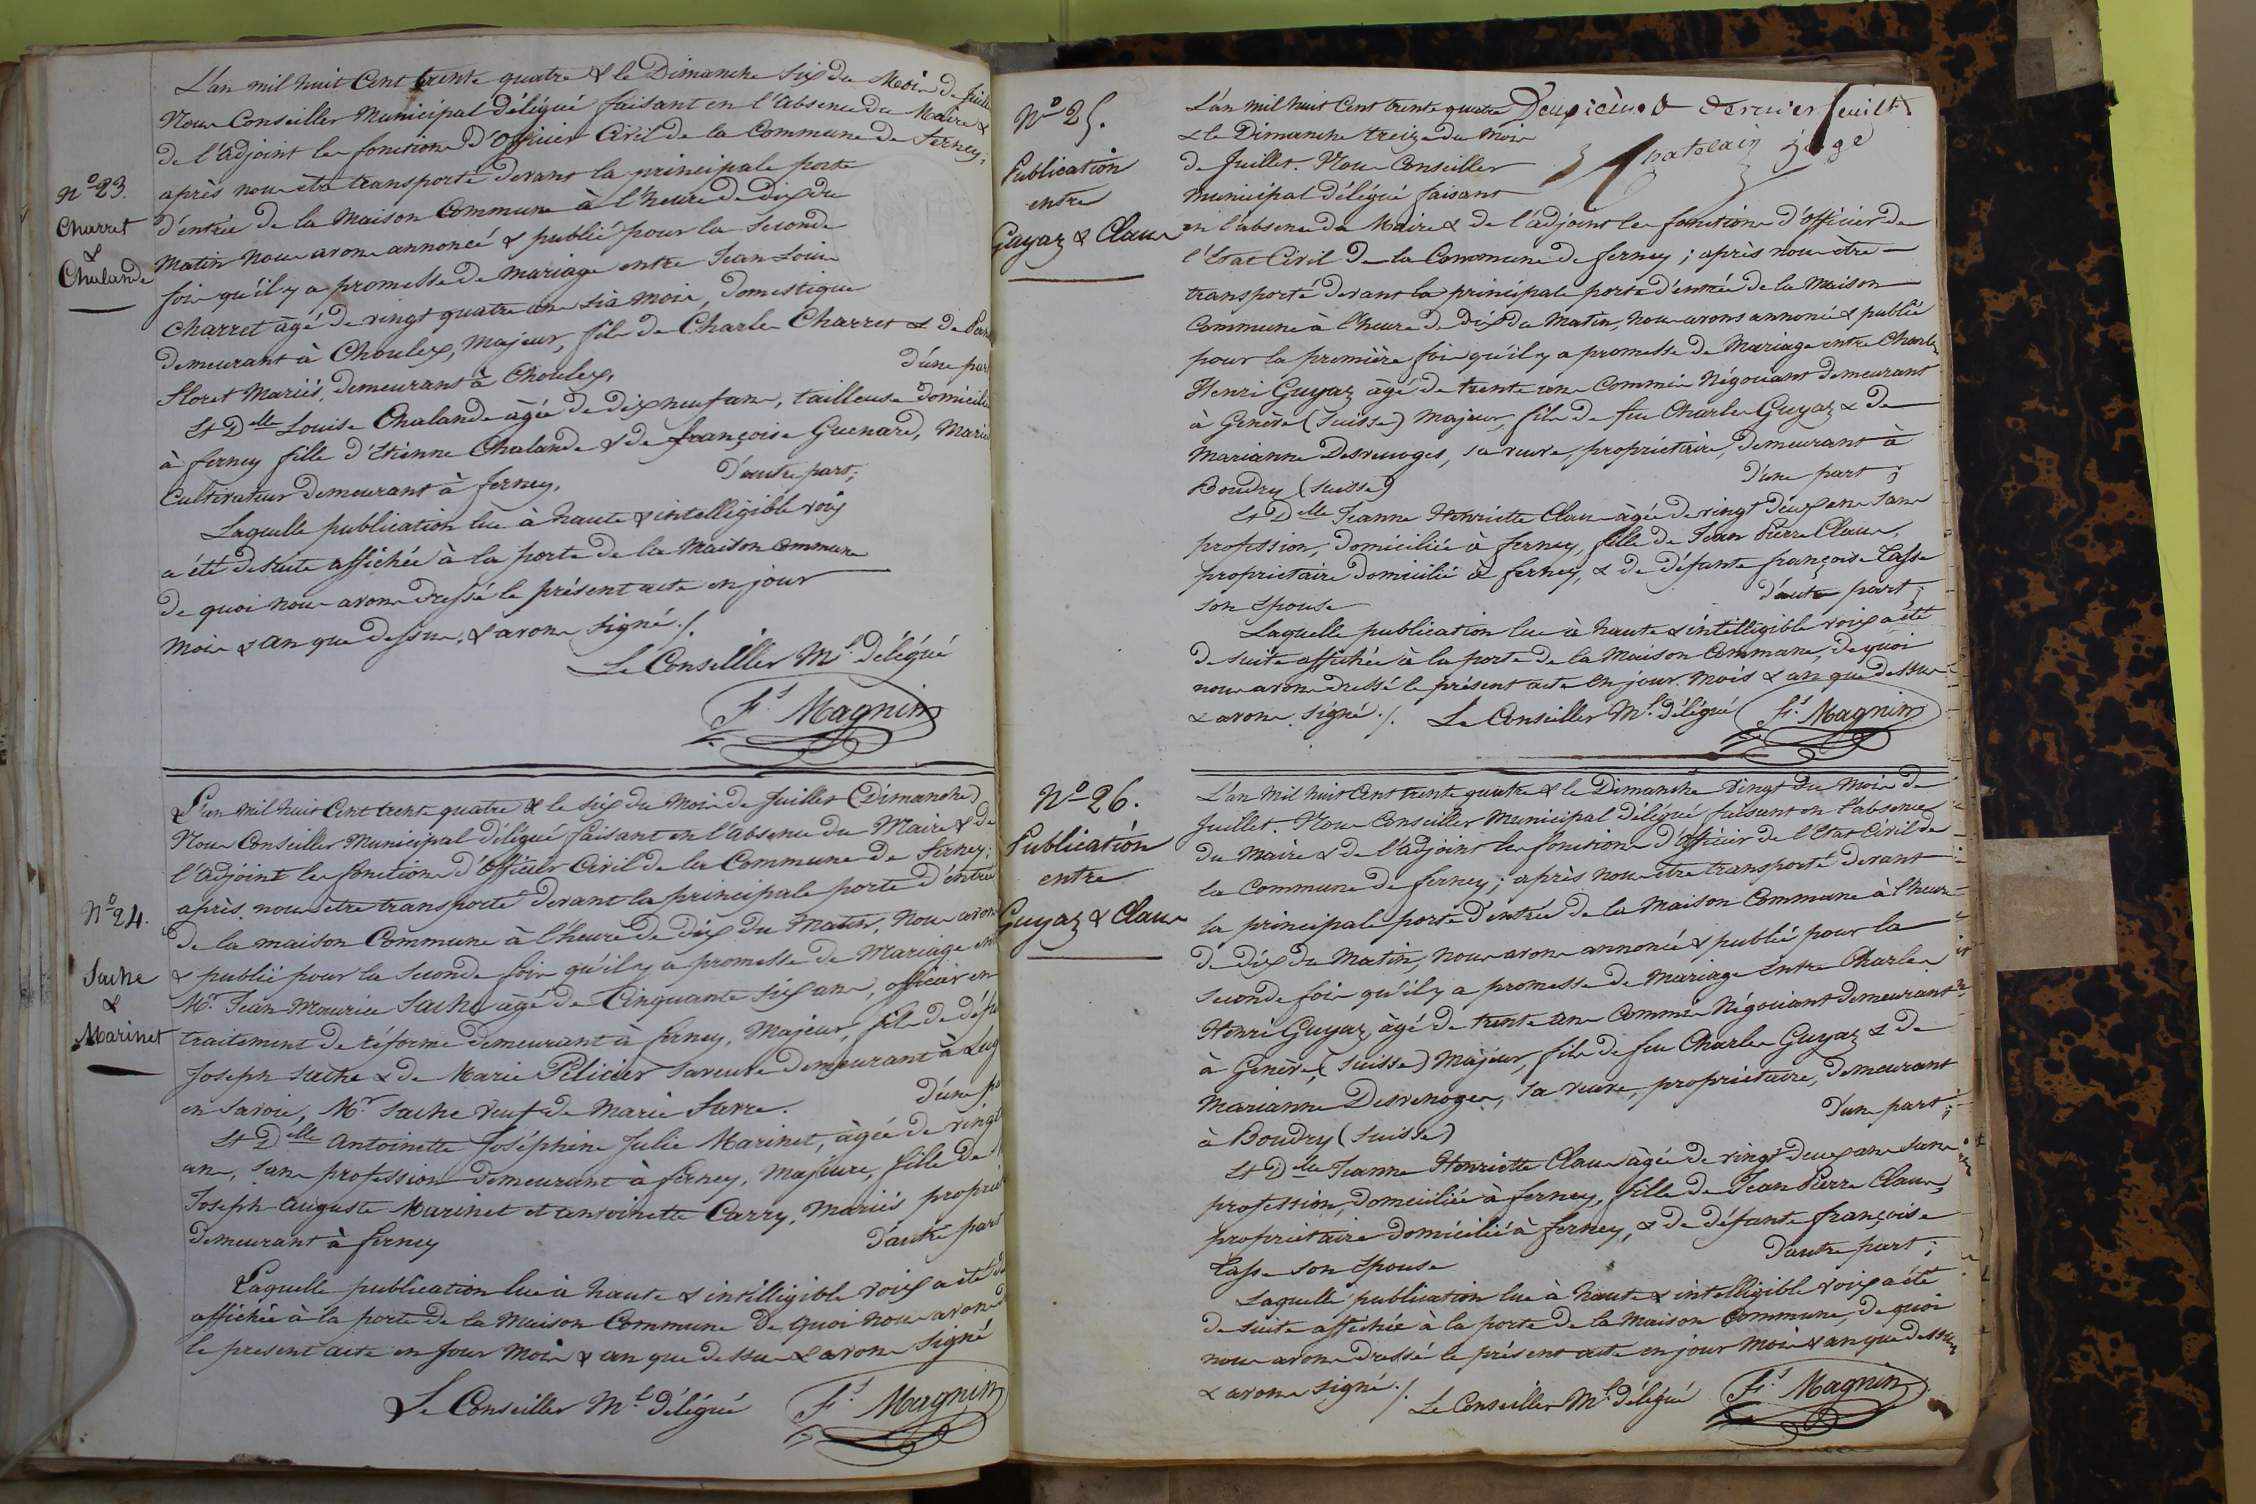 N.º 23.
Charret
&
Chalande
L'an mil huit Cent trente quatre & le Dimanche six du Mois de Juill
Nous Conseiller Municipal délégué faisant en l'absence du Maire &
de l'adjoint les fonctions d'officier Civil de la Commune de Ferney;
après nous être transporté devant la principale porte
d'entrée de la Maison Commune à l'heure de Dix du
Matin nous avons annoncé & publié pour la Seconde
fois qu'il y a promesse de mariage entre Jean Louis
Charret âgé de vingt quatre ans six mois, domestique
demeurant à Choulex, Majeur, fils de Charles Charret & de
Floret Mariés, demeurans à Choulex, d'une par
Et Delle Louise Chalande âgée de dix neuf ans, tailleuse domicili
à ferney fille d'Etienne Chalande & de françoise Guenard, Marié
Cultivateur demeurant à ferney, d'autre part;
Laquelle publication lue à haute & intelligible voix
a été de suite affichée à la porte de la Maison Commune
de quoi nous avons dressé le présent acte en jour
Mois & an que dessus, & avons signé./.
Le Conseiller Ml délégué
Fs Magnin
N.º 24.
Suche
&
Marinet
L'an mil huit Cent trente quatre & le six du Mois de Juillet (Dimanche)
Nous Conseiller Municipal délégué faisant en l'absence du Maire & de
l'adjoint les fonctions d'Officier Civil de la Commune de Ferney;
après nous être transporté devant la principale porte d'entrée
de la maison Commune à l'heure de dix du Matin, Nous avons
& publié pour la seconde fois qu'il y a promesse de Mariage en
Mr Jean Maurice Suche âgé de Cinquante six ans, officier en
traitement de réforme demeurant à ferney, Majeur, fils de défu
Joseph Suche & de Marie Pelicier sa veuve demeurant à
en Savoie, Mr Suche veuf de Marie Favre. d'une p
Et Delle Antoinette Joséphine Julie Marinet, âgée de vingt
ans, sans profession demeurant à ferney, Majeure, fille de
Joseph Auguste Marinet et Antoinette Carry, Mariés propri
demeurant à ferney d'autre part
Laquelle publication lue à haute & intelligible voix a été de
affichée à la porte de la Maison Commune de quoi nous avons
le présent acte en jour mois & an que dessus & avons signé
Le Conseiller Ml délégué
Fs Magnin
Nº 25.
Publication
entre
Guyaz & Claus
Deuxième & dernier feuillet
Chatelain juge
L'an mil huit Cent trente quatre
& le Dimanche treize du Mois
de Juillet. Nous Conseiller
municipal délégué faisant
en l'absence du Maire & de l'adjoint les fonctions d'officier de
l'Etat Civil de la Commune de ferney; après nous être
transporté devant la principale porte d'entrée de la Maison
Commune à l'heure de Dix du Matin, nous avons annoncé & publié
pour la première fois qu'il y a promesse de Mariage entre Charles
Henri Guyaz âgé de trente ans Commis Négociant demeurant
à Genève (Suisse) Majeur, fils de feu Charles Guyaz & de
Marianne Desvenoges, sa veuve, propriétaire, demeurant à
Boudry (Suisse) d'une part;
Et Delle Jeanne Henriette Claus âgée de vingt deux ans sans
profession, domiciliée à ferney, fille de Jean Pierre Claus,
propriétaire domicilié à ferney, & de défunte françoise Casse
son Epouse d'autre part;
Laquelle publication lue à haute & intelligible voix a été
de suite affichée à la porte de la Maison Commune, de quoi
nous avons dressé le présent acte en jour Mois & an que dessus
& avons signé./. Le Conseiller Ml délégué Fs Magnin
Nº 26.
Publication
entre
Guyaz & Claus
L'an Mil huit Cent trente quatre & le Dimanche Vingt du Mois de
Juillet. Nous Conseiller Municipal délégué faisant en l'absence
du Maire & de l'adjoint les fonctions d'officier de l'Etat Civil de
la Commune de ferney; après nous être transporté devant
la principale porte d'entrée de la Maison Commune à l'heure
de dix du Matin, nous avons annoncé & publié pour la
seconde fois qu'il y a promesse de Mariage entre Charles
Henri Guyaz âgé de trente ans Commis Négociant demeurant
à Genève, (Suisse) Majeur, fils de feu Charles Guyaz & de
Marianne Desvenoges, sa veuve, propriétaire, demeurant
à Boudry (Suisse) d'une part;
Et Delle Jeanne Henriette Claus âgée de vingt deux ans sans
profession, domiciliée à ferney, fille de Jean Pierre Claus,
propriétaire domicilié à ferney, & de défunte françoise
Casse son Epouse d'autre part;
Laquelle publication lue à haute & intelligible voix a été
de suite affichée à la porte de la Maison Commune, de quoi
nous avons dressé le présent acte en jour Mois & an que dessus
& avons signé./. Le Conseiller Ml délégué Fs Magnin